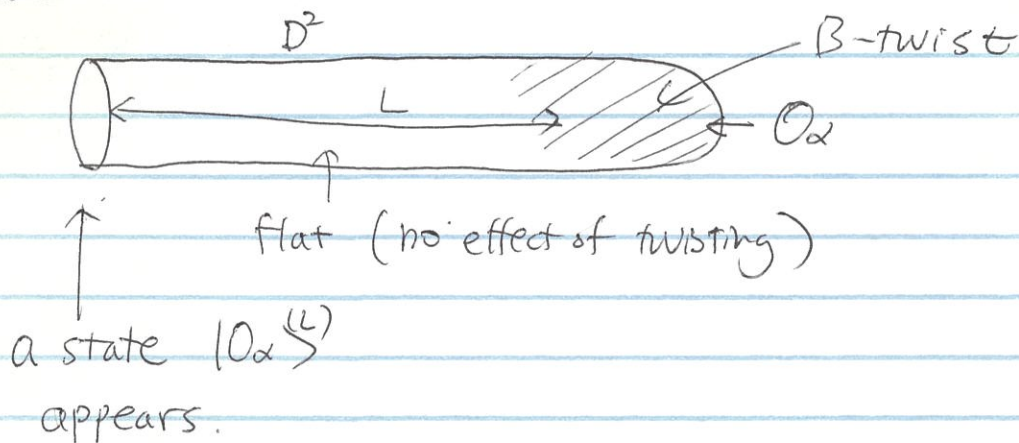 D²
B-twist
L
O_α
flat (no effect of twisting)
a state |O_α^{(L)}⟩
appears.